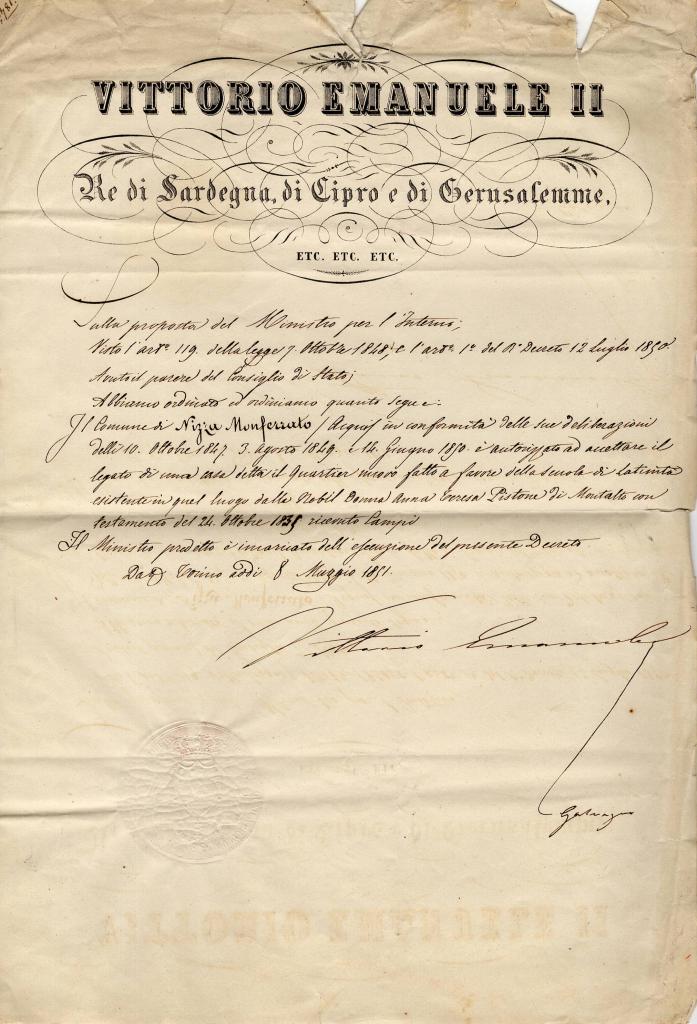 VITTORIO EMANUELE II
Re di Sardegna, di Cipro e di Gerusalemme,
ETC. ETC. ETC.
Sulla proposta del Ministro per l'Interno;
Visto l'art.º 119. della legge 7. Ottobre 1848, e l'art.º 1º del R.º Decreto 12 Luglio 1850.
Avuto il parere del Consiglio di Stato;
Abbiamo ordinato ed ordiniamo quanto segue:
Il Comune di Nizza Monferrato (Acqui) in conformità delle sue deliberazioni
delli 10. Ottobre 1847. 3. Agosto 1849. e 14. Giugno 1850. è autorizzato ad accettare il
legato di una casa detta il Quartier nuovo fatto a favore della scuola di latinità
esistente in quel luogo dalla Nobil Donna Anna Teresa Pistone di Montalto con
testamento del 24. Ottobre 1835 ricevuto Campi
Il Ministro predetto è incaricato dell'esecuzione del presente Decreto
Dat. Torino addì 8 Maggio 1851.
Vittorio Emanuele
Galvagno